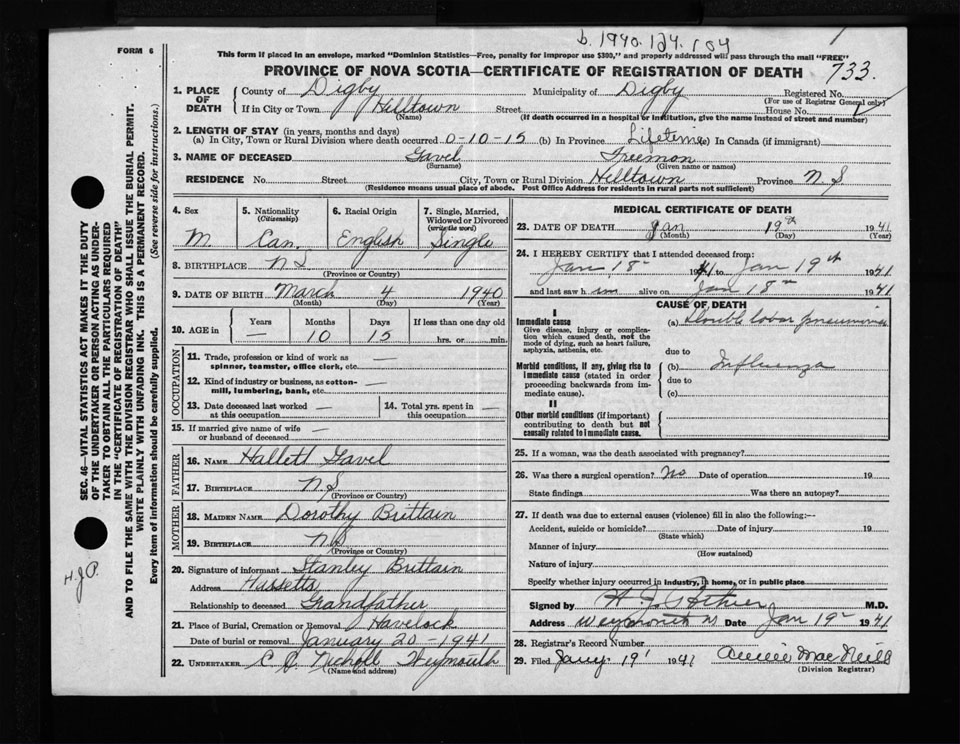 b. 1940. 124. 104
FORM 6
This form if placed in an envelope, marked "Dominion Statistics—Free, penalty for improper use $300," and properly addressed will pass through the mail "FREE"
PROVINCE OF NOVA SCOTIA—CERTIFICATE OF REGISTRATION OF DEATH 733.
1. PLACE OF DEATH County of Digby Municipality of Digby Registered No.
(For use of Registrar General only)
If in City or Town Hilltown Street House No.
(Name) (If death occurred in a hospital or institution, give the name instead of street and number)
2. LENGTH OF STAY (in years, months and days)
(a) In City, Town or Rural Division where death occurred 0-10-15 (b) In Province Lifetime (c) In Canada (if immigrant)
3. NAME OF DECEASED Gavel Freemon
(Surname) (Given name or names)
RESIDENCE No. Street City, Town or Rural Division Hilltown Province N.S
(Residence means usual place of abode. Post Office Address for residents in rural parts not sufficient)
4. Sex 5. Nationality (Citizenship) 6. Racial Origin 7. Single, Married, Widowed or Divorced (write the word)
M Can. English Single
8. BIRTHPLACE NS
(Province or Country)
9. DATE OF BIRTH March 4 1940
(Month) (Day) (Year)
10. AGE in Years Months Days If less than one day old
— 10 15 hrs. or min.
OCCUPATION
11. Trade, profession or kind of work as —
spinner, teamster, office clerk, etc.
12. Kind of industry or business, as cotton- —
mill, lumbering, bank, etc.
13. Date deceased last worked — 14. Total yrs. spent in —
at this occupation this occupation
15. If married give name of wife —
or husband of deceased
FATHER
16. NAME Hallett Gavel
17. BIRTHPLACE N.S
(Province or Country)
MOTHER
18. MAIDEN NAME Dorothy Brittain
19. BIRTHPLACE N.S
(Province or Country)
20. Signature of informant Stanley Brittain
Address Hassetts
Relationship to deceased Grandfather
21. Place of Burial, Cremation or Removal Havelock
Date of burial or removal January 20-1941
22. UNDERTAKER Nicholl Weymouth
(Name and address)
MEDICAL CERTIFICATE OF DEATH
23. DATE OF DEATH Jan 19th 1941
(Month) (Day) (Year)
24. I HEREBY CERTIFY that I attended deceased from:
Jan 18 1941 to Jan 19th 1941
and last saw him alive on Jan 18 1941
CAUSE OF DEATH
I
Immediate cause (a) Double lobar pneumonia
Give disease, injury or complication which caused death, not the mode of dying, such as heart failure, asphyxia, asthenia, etc.
due to
Morbid conditions, if any, giving rise to immediate cause (stated in order proceeding backwards from immediate cause).
(b) Influenza
due to
(c)
II
Other morbid conditions (if important) contributing to death but not causally related to immediate cause.
25. If a woman, was the death associated with pregnancy?
26. Was there a surgical operation? No Date of operation 19
State findings Was there an autopsy?
27. If death was due to external causes (violence) fill in also the following:—
Accident, suicide or homicide? Date of injury 19
(State which)
Manner of injury
(How sustained)
Nature of injury
Specify whether injury occurred in industry, in home, or in public place
Signed by M.D.
Address Weymouth N Date Jan 19 1941
28. Registrar's Record Number
29. Filed Jany. 19 1941 Annie MacNeill
(Division Registrar)
SEC. 46—VITAL STATISTICS ACT MAKES IT THE DUTY
OF THE UNDERTAKER OR PERSON ACTING AS UNDER-
TAKER TO OBTAIN ALL THE PARTICULARS REQUIRED
IN THE "CERTIFICATE OF REGISTRATION OF DEATH"
AND TO FILE THE SAME WITH THE DIVISION REGISTRAR WHO SHALL ISSUE THE BURIAL PERMIT.
WRITE PLAINLY WITH UNFADING INK. THIS IS A PERMANENT RECORD.
Every item of information should be carefully supplied. (See reverse side for instructions.)
H.J.P.